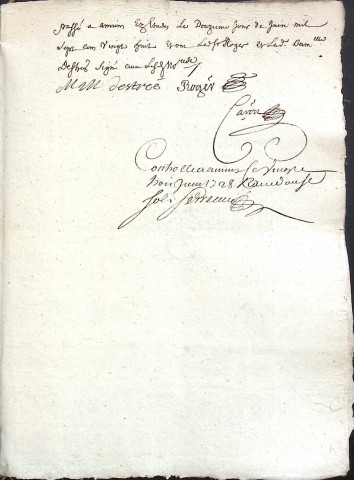 passé a amiens Es Etudes Le Douzieme Jour de Juin mil
Sept cen Vingt huit et ont Led Sr Roger et Lad. Dam.lle
Destrée signé avec Les Nores
M M destrée Roger
Caron
Controllé a amiens Ce
Juin 1728 Reçu douze
sols